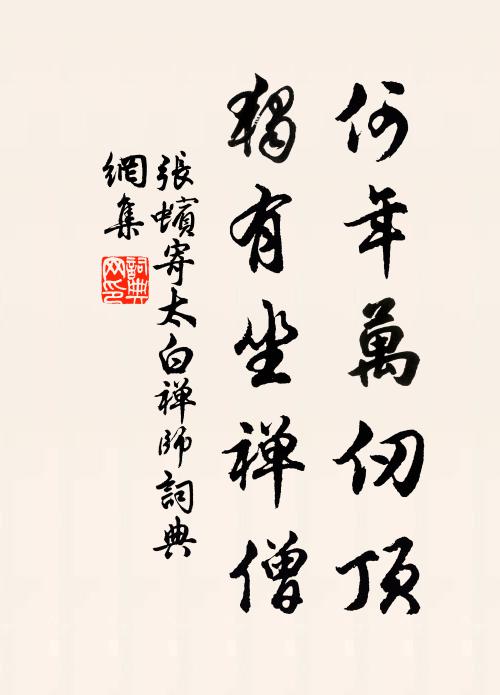 何年萬仞頂
獨有坐禅僧
張蠙寄太白禅師詞典
網集
詞典
网印